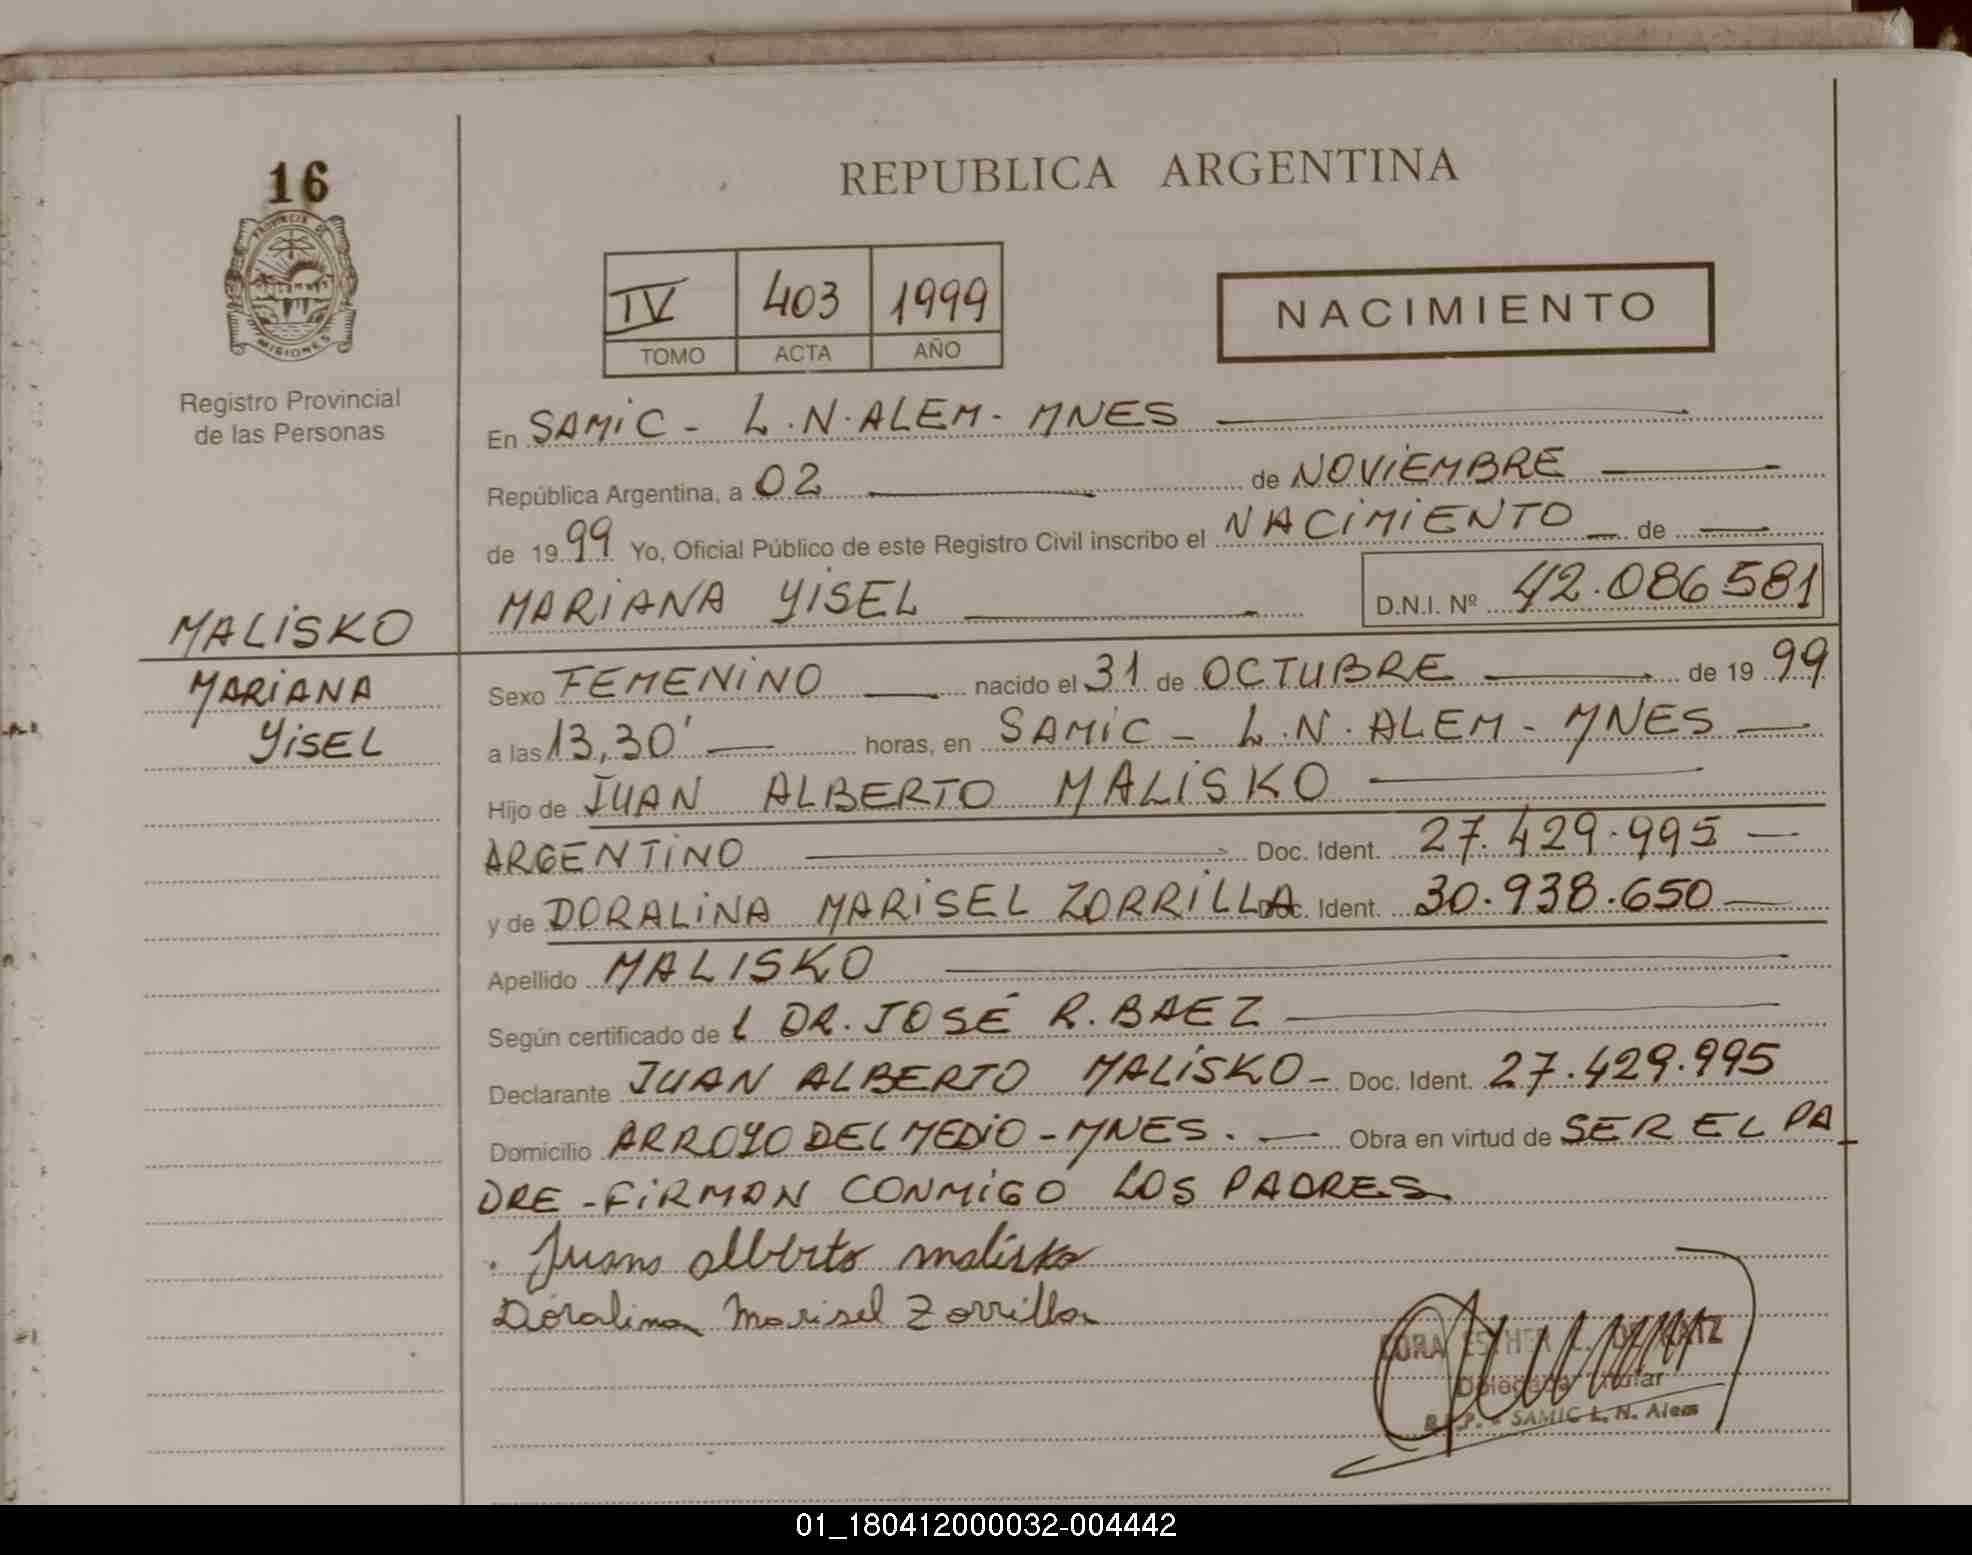 16
PROVINCIA DE
MISIONES
Registro Provincial
de las Personas
REPUBLICA ARGENTINA
IV 403 1999
TOMO ACTA AÑO
NACIMIENTO
En SAMIC - L.N.ALEM - MNES
República Argentina, a 02 de NOVIEMBRE
de 1999 Yo, Oficial Público de este Registro Civil inscribo el NACIMIENTO de
MARIANA YISEL D.N.I. Nº 42.086581
MALISKO
MARIANA
YISEL
Sexo FEMENINO nacido el 31 de OCTUBRE de 1999
a las 13,30' horas, en SAMIC - L.N.ALEM - MNES
Hijo de JUAN ALBERTO MALISKO
ARGENTINO Doc. Ident. 27.429.995
y de DORALINA MARISEL ZORRILLA Doc. Ident. 30.938.650
Apellido MALISKO
Según certificado de L DR. JOSÉ R. BAEZ
Declarante JUAN ALBERTO MALISKO - Doc. Ident. 27.429.995
Domicilio ARROYO DEL MEDIO - MNES. Obra en virtud de SER EL PA
DRE - FIRMAN CONMIGO LOS PADRES
Juan alberto malisko
Doralina Marisel Zorrilla
ESTHER
SAMIC L. N. Alem
01_180412000032-004442